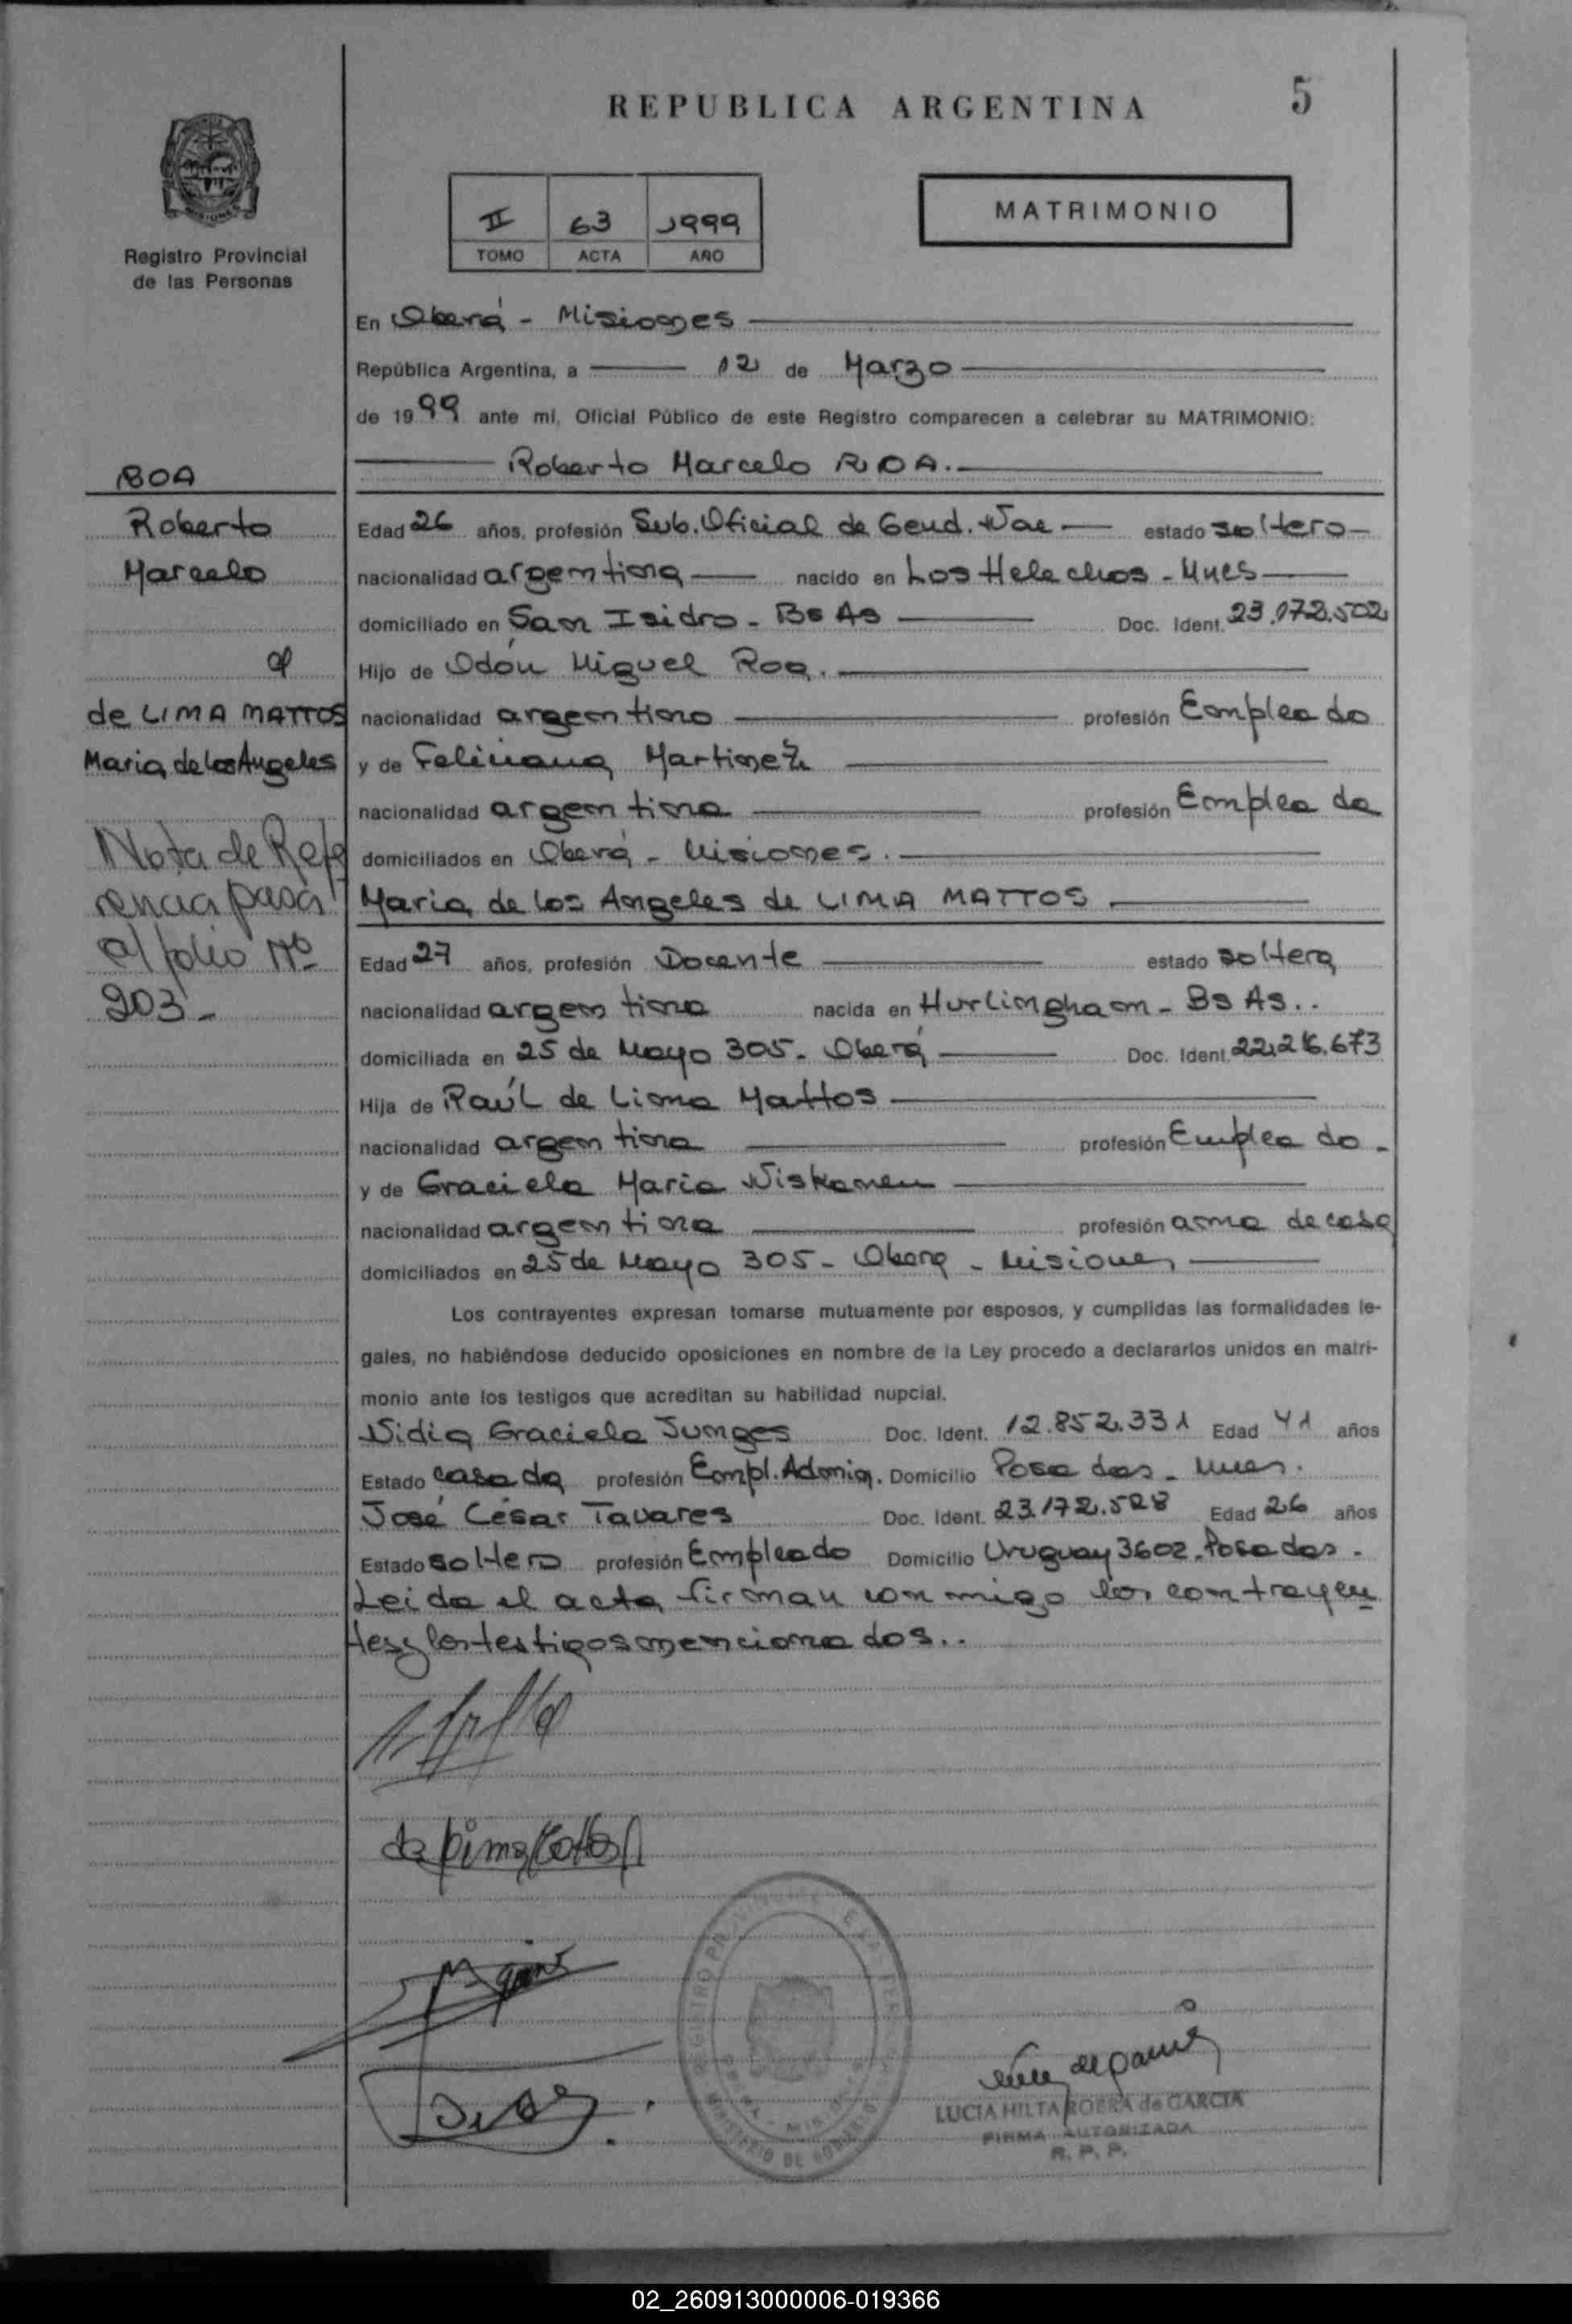 REPUBLICA ARGENTINA
5
II 63 1999
TOMO ACTA AÑO
MATRIMONIO
MISIONES
Registro Provincial
de las Personas
En Oberá - Misiones
República Argentina, a 12 de Marzo
de 1999 ante mi, Oficial Público de este Registro comparecen a celebrar su MATRIMONIO:
Roberto Marcelo ROA.
ROA
Roberto
Marcelo
de LIMA MATTOS
Maria de los Angeles
Nota de Refe
rencia pasa
al folio Nº
203-
Edad 26 años, profesión Sub. Oficial de Gend. Nac estado soltero
nacionalidad argentina nacido en Los Helechos - Mnes
domiciliado en San Isidro - Bs As Doc. Ident. 23.172.502
Hijo de Odón Miguel Roa.
nacionalidad argentino profesión Empleado
y de Feliciana Martinez
nacionalidad argentina profesión Empleada
domiciliados en Oberá - Misiones.
Maria de los Angeles de LIMA MATTOS
Edad 27 años, profesión Docente estado soltera
nacionalidad argentina nacida en Hurlingham - Bs As..
domiciliada en 25 de Mayo 305 - Oberá Doc. Ident.
Hija de Raúl de Lima Mattos
nacionalidad argentina profesión Empleado -
y de Graciela Maria Niskanen
nacionalidad argentina profesión ama de casa
domiciliados en 25 de Mayo 305 - Obera - Misiones
Los contrayentes expresan tomarse mutuamente por esposos, y cumplidas las formalidades le-
gales, no habiéndose deducido oposiciones en nombre de la Ley procedo a declararlos unidos en matri-
monio ante los testigos que acreditan su habilidad nupcial.
Nidia Graciela Junges Doc. Ident. 12.852.331 Edad 41 años
Estado casada profesión Empl. Admin. Domicilio Posadas - Mnes.
José César Tavares Doc. Ident. 23.172.528 Edad 26 años
Estado soltero profesión Empleado Domicilio Uruguay 3602. Posadas.
Leida el acta firman conmigo los contrayen
tes y los testigos mencionados..
de Lima Mattos
LUCIA HILTA ROBRA de GARCIA
FIRMA AUTORIZADA
R. P. P.
02_260913000006-019366